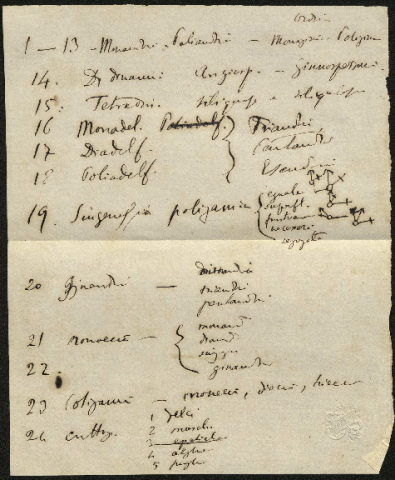 Ordini
1 — 13 - Monandri - Poliandri — Monogini - Poligini
14. Didinami Angiosp. - Ginnospermi
15. Tetradin. siliquos e
16 Monadel. Poliadelf. Triandri
17 Diadelf.
18 Poliadelf.
19. Singenesia poligamia eguale
superfl.
20 Ginandri — diandri
triandri
pentandri
21 monoecia — monand
diand
singe
ginandri
22.
23 Poligamia — monoecia, dioecia, trioecia
24 crittog. 1 felci
2 muschi
3 epatiche
4 alghe
5 funghi